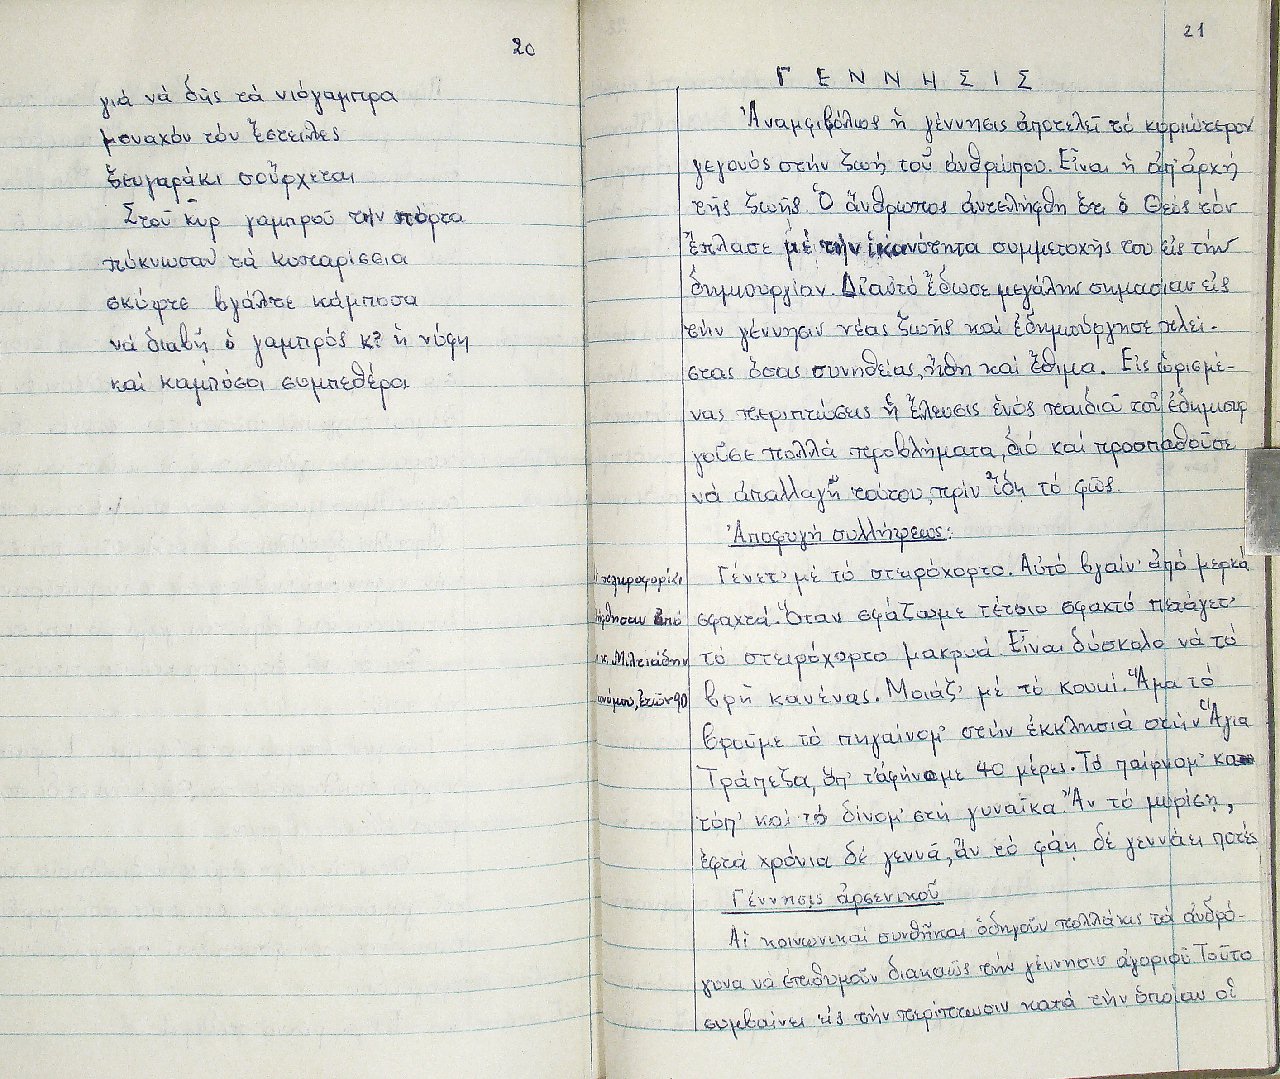 20
γιά νά δῆς τά νιόγαμπρα
μοναχόν τόν ἔστειλες
ζευγαράκι σοὔρχεται
Στοῦ κῦρ γαμπροῦ τήν πόρτα
πύκνωσαν τά κυπαρίσσια
σκύψτε βγάλτε κάμποσα
νά διαβῆ ὁ γαμπρός κ? ἡ νύφη
καί καμπόσοι συμπεθέροι
21
ΓΕΝΝΗΣΙΣ
Ἀναμφιβόλως ἡ γέννησις ἀποτελεῖ τό κυριώτερον
γεγονός στήν ζωή τοῦ ἀνθρώπου. Εἶναι ἡ ἀπ' ἀρχή
τῆς ζωῆς. Ὁ ἄνθρωπος ἀντελήφθη ὅτι ὁ Θεός τόν
ἔπλασε μέ τήν ἱκανότητα συμμετοχῆς του εἰς τήν
δημιουργίαν. Δι' αὐτό ἔδωσε μεγάλην σημασίαν εἰς
τήν γέννησιν νέας ζωῆς καί ἐδημιούργησε πλεί-
στας ὅσας συνηθείας, ἤθη καί ἔθιμα. Εἰς ὡρισμέ-
νας περιπτώσεις ἡ ἔλευσις ἑνός παιδιοῦ τοῦ ἐδημιουρ
γοῦσε πολλά προβλήματα, διό καί προσπαθοῦσε
νά ἀπαλλαγῆ τούτου, πρίν ἴδη τό φῶς.
Ἀποφυγή συλλήψεως:
Γένετ' μέ τό στειρόχορτο. Αὐτό βγαίν' ἀπό μερκά
σφαχτά. Ὅταν σφάζωμε τέτοιο σφαχτό πετάγετ'
τό στειρόχορτο μακρυά. Εἶναι δύσκολο νά τό
βρῆ κανένας. Μοιάζ' μέ τό κουκί. Ἅμα τό
βροῦμε τό πηγαίνομ' στήν ἐκκλησιά στήν Ἅγια
Τράπεζα, ὅπ' τ' ἀφήνομε 40 μέρες. Τό παίρνομ' κα
τόπ' καί τό δίνομ' στή γυναῖκα. Ἄν τό μυρίση,
ἑφτά χρόνια δέ γεννᾶ, ἄν τό φάη δέ γεννάει ποτές
Γέννησις ἀρσενικοῦ
Αἱ κοινωνικαί συνθῆκαι ὁδηγοῦν πολλάκις τά ἀνδρό-
γυνα νά ἐπιθυμοῦν διακαῶς τήν γέννησιν ἀγοριοῦ. Τοῦτο
συμβαίνει εἰς τήν περίπτωσιν κατά τήν ὁποίαν οἱ
πληροφορίαι
ἀπό
κ. Μιλτιάδην
ἐτῶν 90